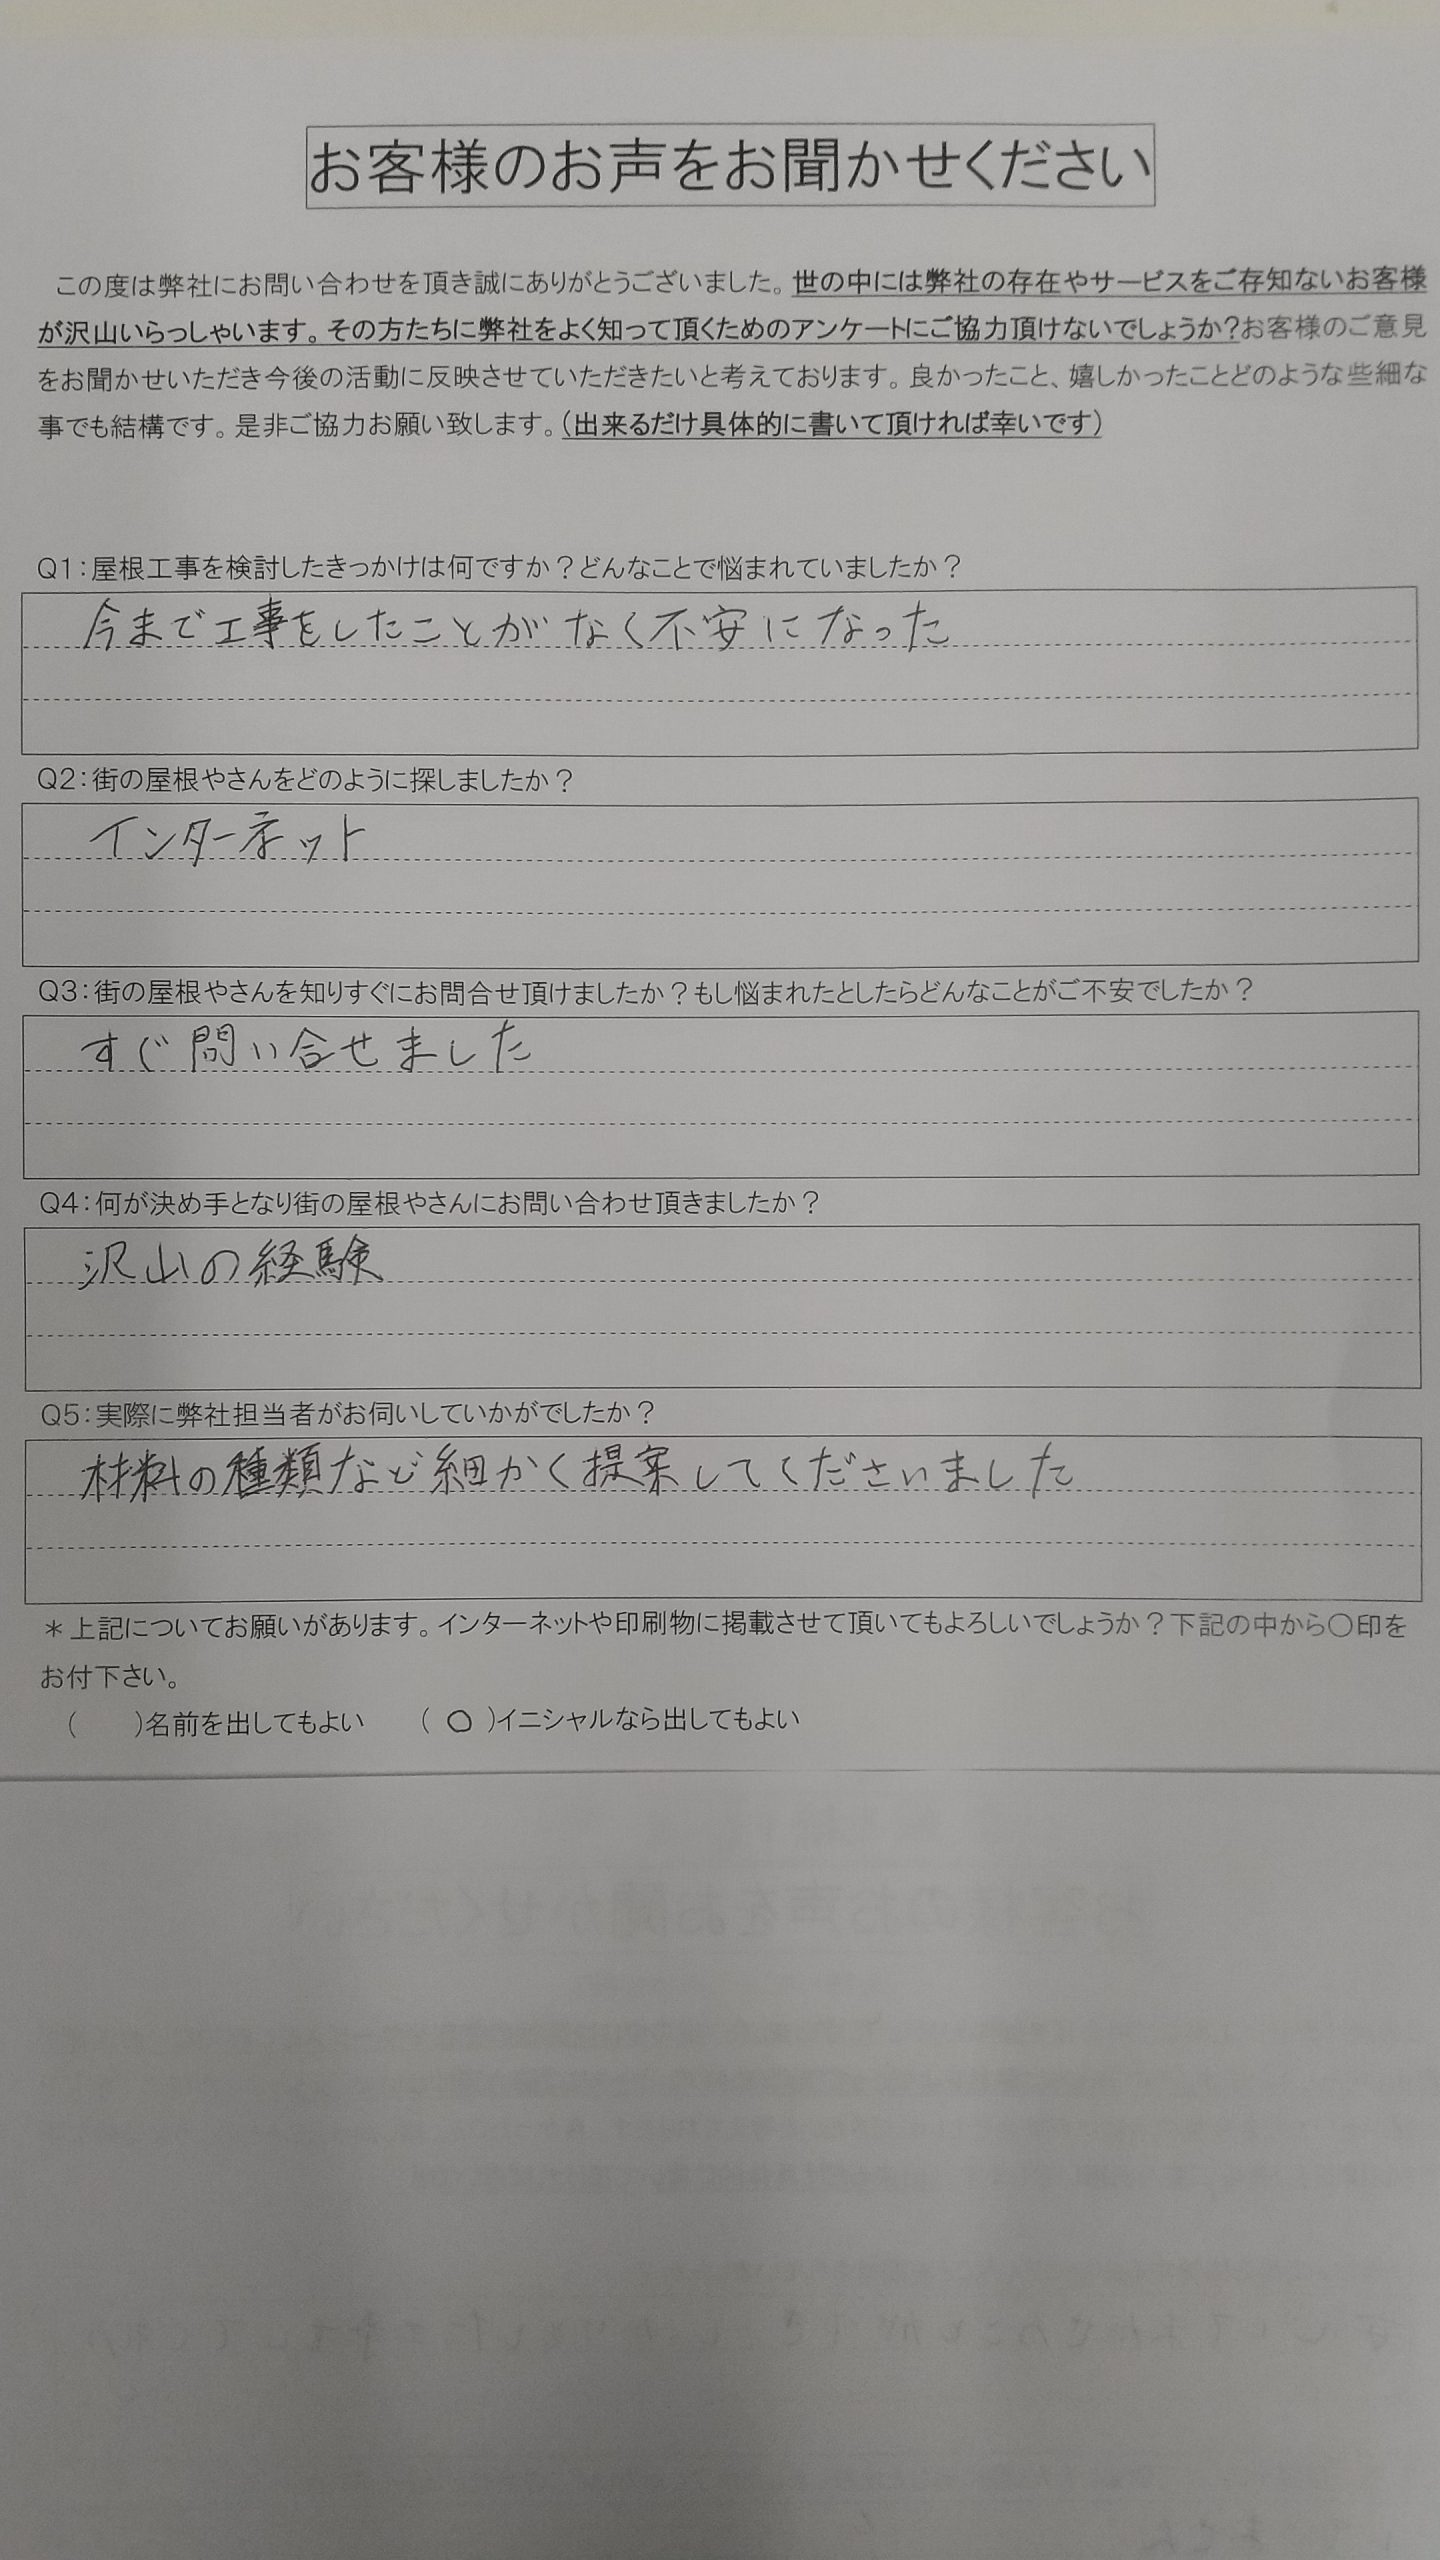 お客様のお声をお聞かせください
この度は弊社にお問い合わせを頂き誠にありがとうございました。世の中には弊社の存在やサービスをご存知ないお客様
が沢山いらっしゃいます。その方たちに弊社をよく知って頂くためのアンケートにご協力頂けないでしょうか?お客様のご意見
をお聞かせいただき今後の活動に反映させていただきたいと考えております。良かったこと、嬉しかったことどのような些細な
事でも結構です。是非ご協力お願い致します。(出来るだけ具体的に書いて頂ければ幸いです)
Q1:屋根工事を検討したきっかけは何ですか?どんなことで悩まれていましたか?
今まで工事をしたことがなく不安になった
Q2:街の屋根やさんをどのように探しましたか?
インターネット
Q3:街の屋根やさんを知りすぐにお問合せ頂けましたか?もし悩まれたとしたらどんなことがご不安でしたか?
すぐ問い合せました
Q4:何が決め手となり街の屋根やさんにお問い合わせ頂きましたか?
沢山の経験
Q5:実際に弊社担当者がお伺いしていかがでしたか?
材料の種類など細かく提案してくださいました
*上記についてお願いがあります。インターネットや印刷物に掲載させて頂いてもよろしいでしょうか?下記の中から〇印を
お付下さい。
(　　)名前を出してもよい　(〇)イニシャルなら出してもよい